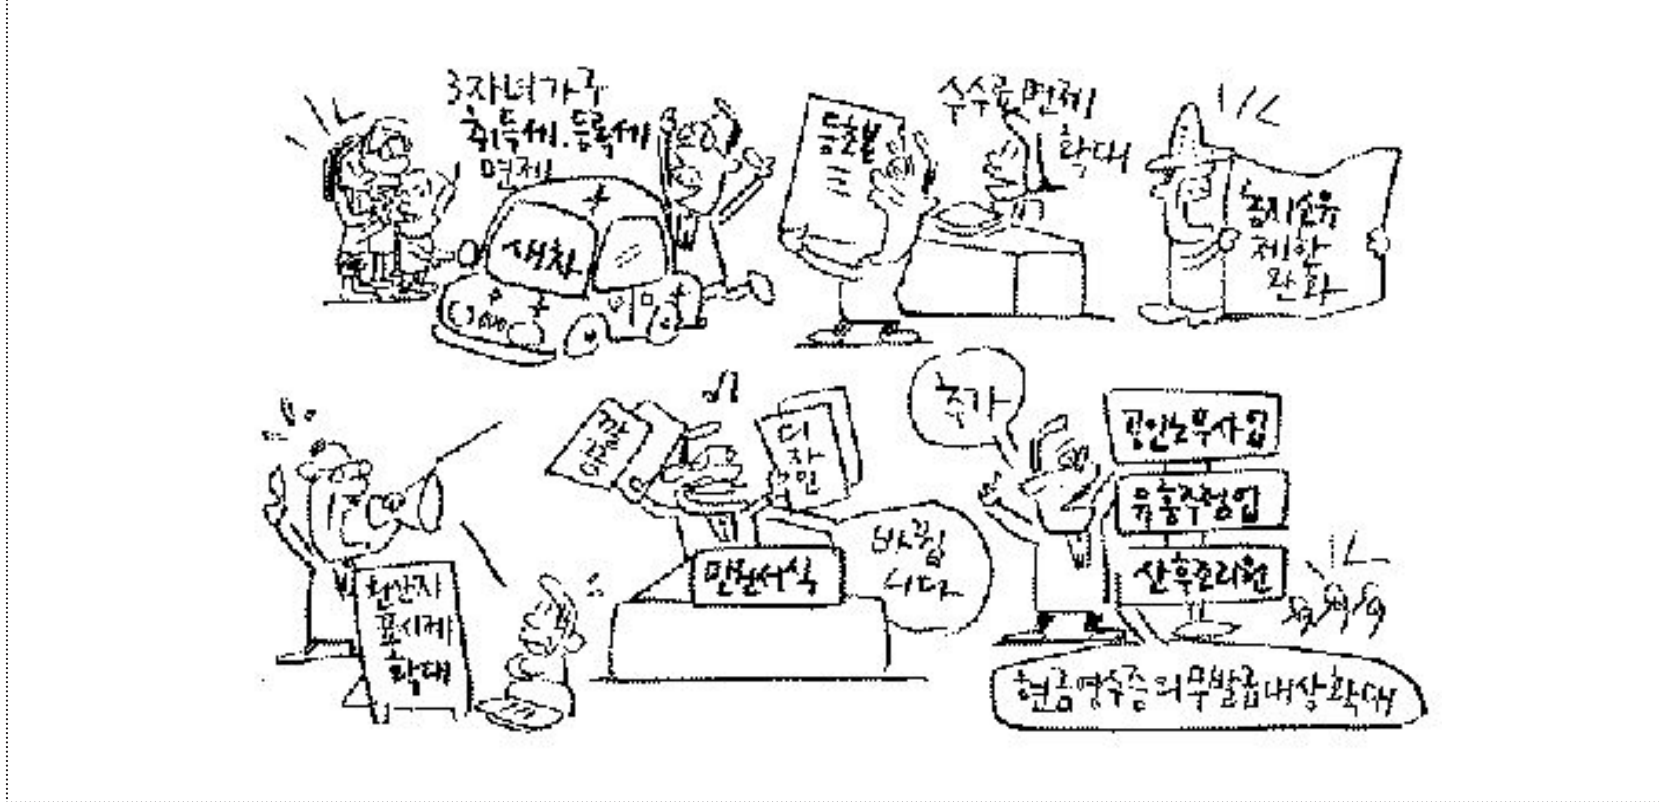 3자녀가구
취득세.등록세
면제
새차
등본
수수료 면제
확대
농지소유
제한
완화
원산지
표시제
확대
깔끔
디
자
인
민원서식
바뀝
니다
추가
공인노무사업
유흥주점업
산후조리원
현금영수증 의무발급 대상 확대